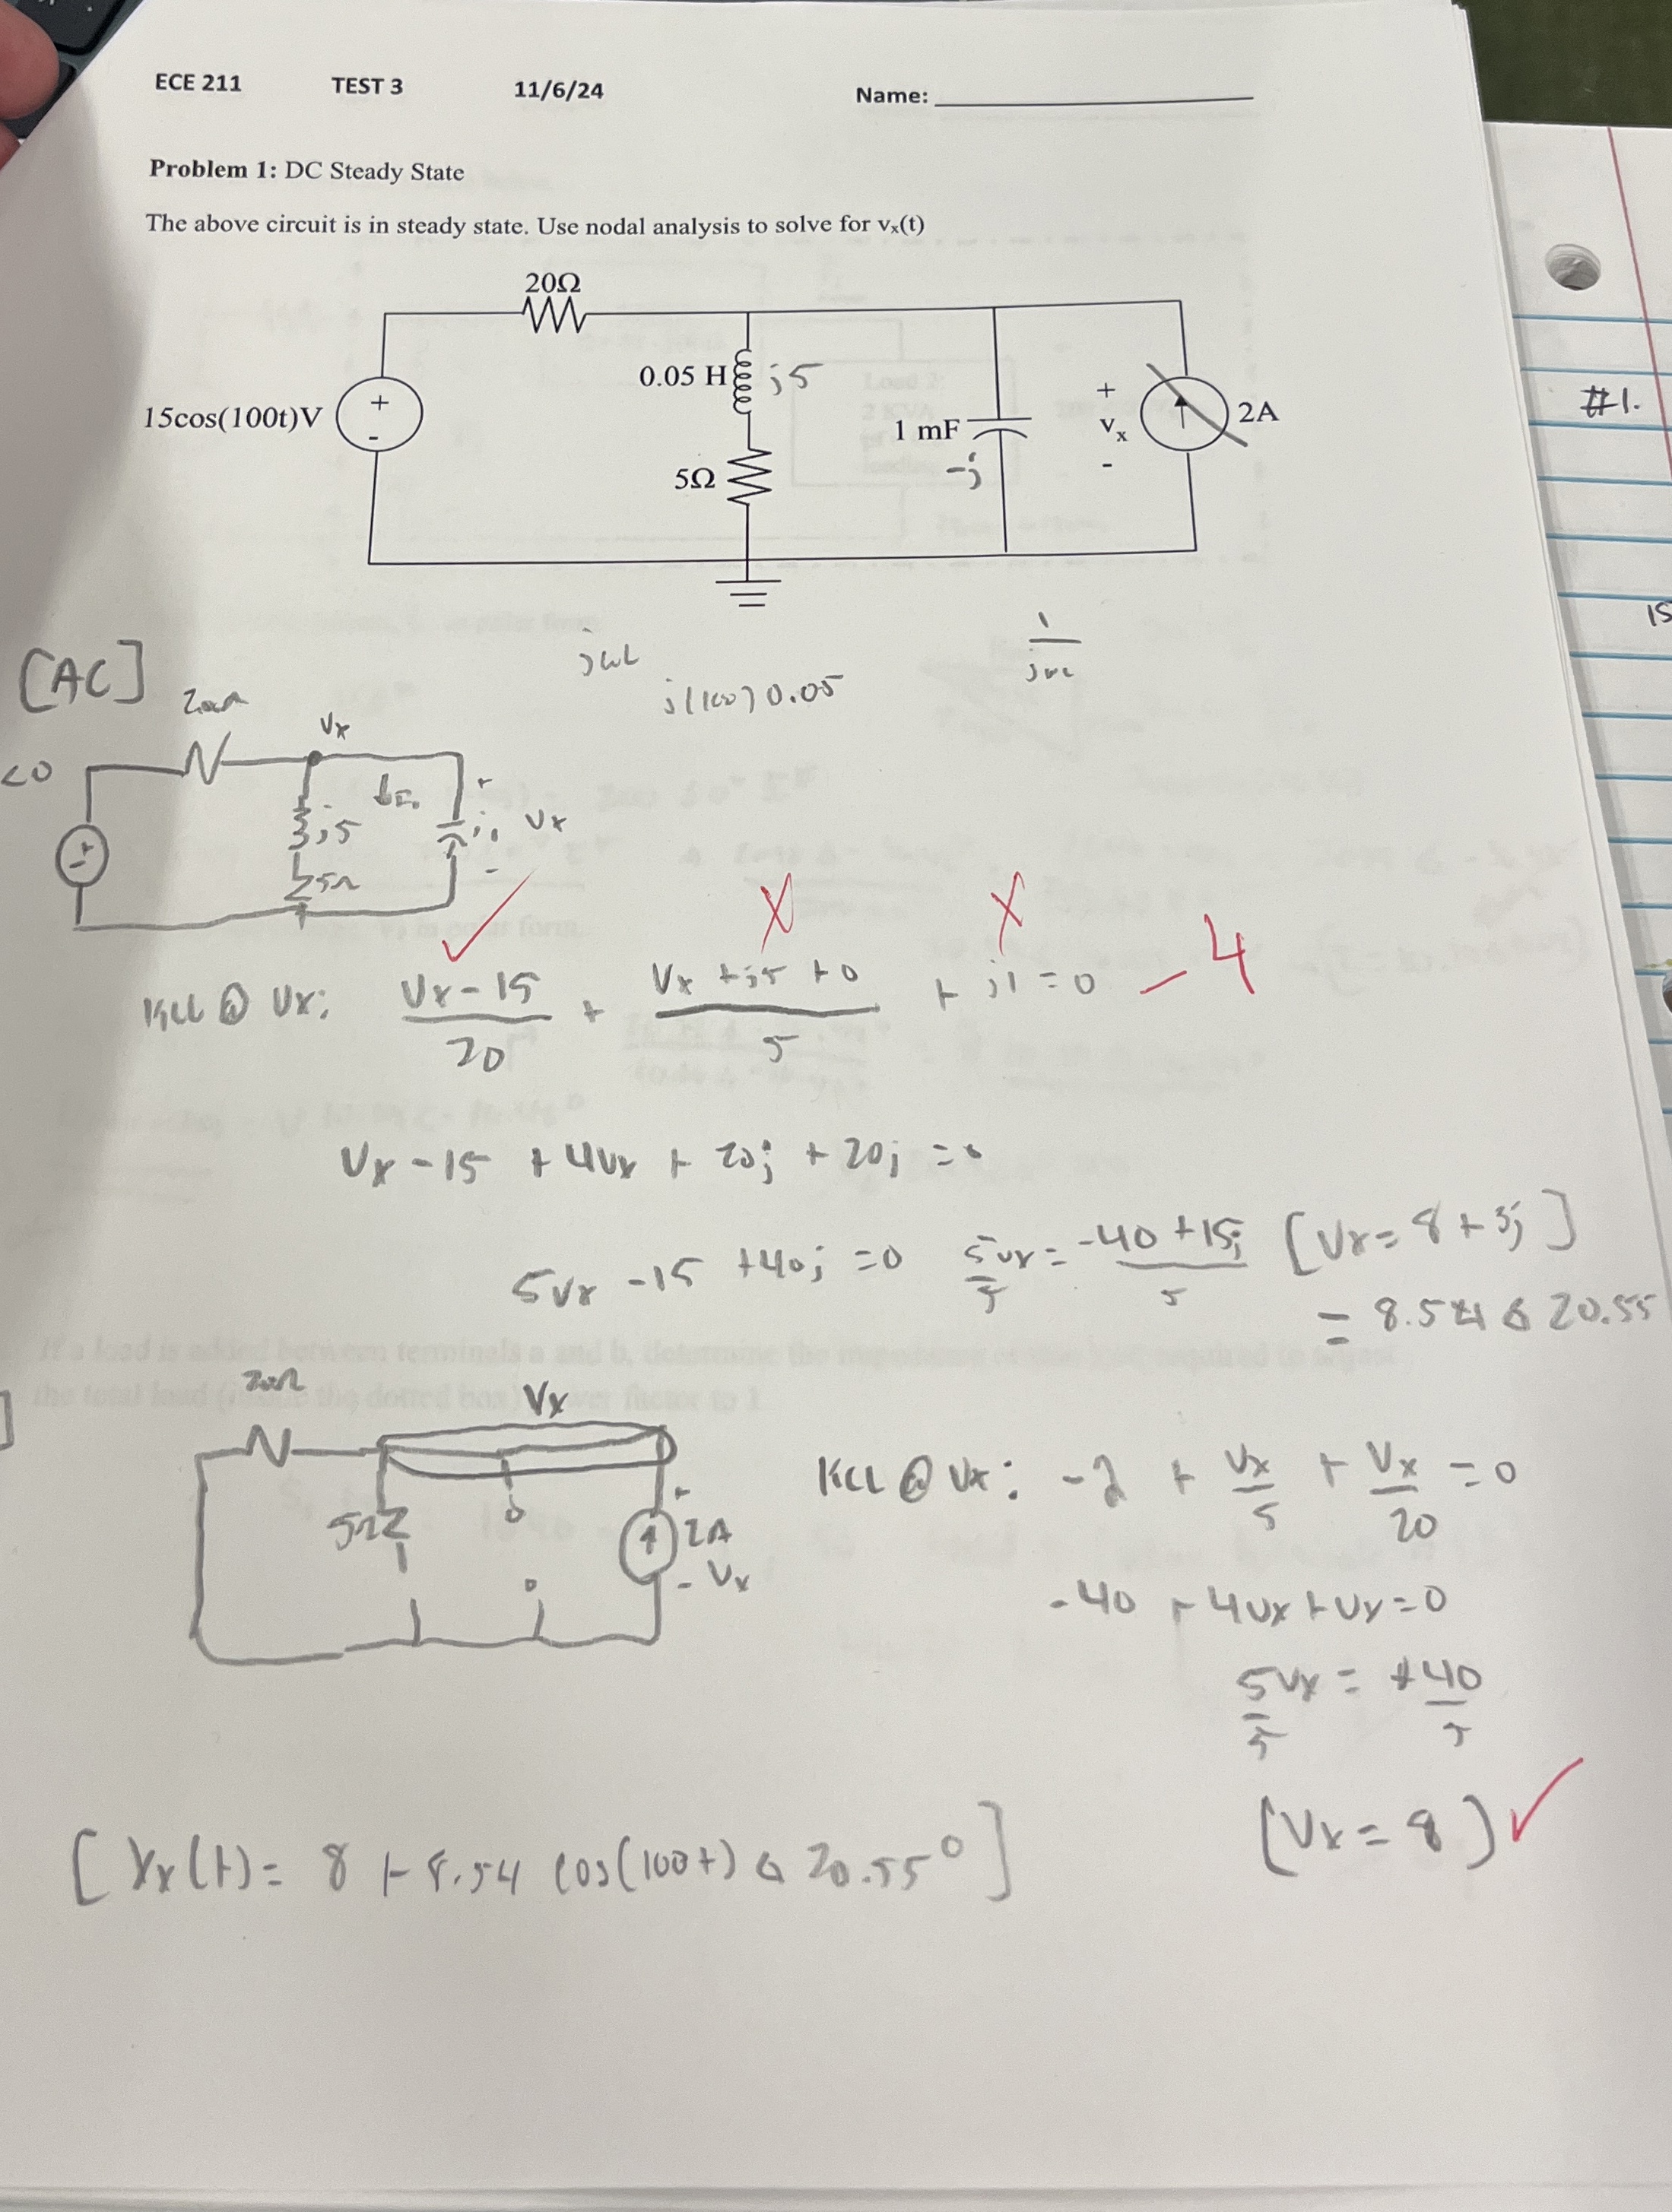 ECE 211 TEST 3 11/6/24 Name:
Problem 1: DC Steady State
The above circuit is in steady state. Use nodal analysis to solve for vx(t)
20Ω
0.05 H j5
15cos(100t)V + -
1 mF
-j
+
vx
-
2A
#1.
5Ω
[AC]
jωL
j(100)0.05
1
20Ω
Vx
<0
j5
Vx
5Ω
KCL @ Vx: Vx-15/20 + Vx+j5+0/5 + j1 = 0 -4
Vx - 15 + 4Vx + 20j + 20j = 0
5Vx - 15 + 40j = 0 5Vx/5 = -40+15j/5 [Vx = 8 + 3j]
= 8.54 20.55
If a load is added between terminals a and b, determine the
20Ω
Vx
5Ω
2A
- Vx
KCL @ Vx: -2 + Vx/5 + Vx/20 = 0
-40 + 4Vx + Vx = 0
5Vx/5 = +40/5
(Vx = 8)
[Vx(t) = 8 + 8.54 cos(100t) 20.55°]